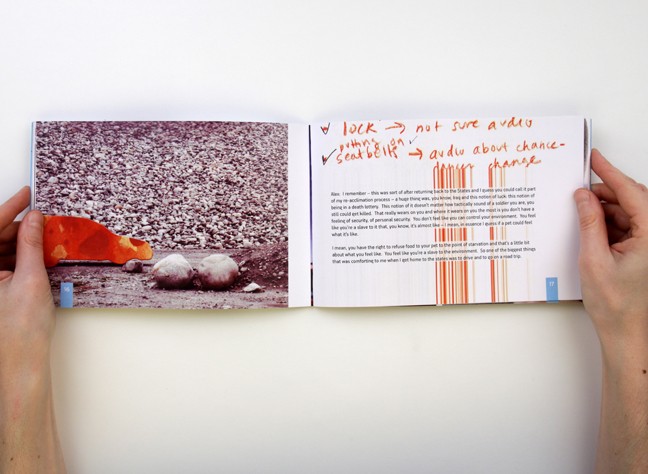 lock → not sure audio
putting on
seatbelts → audio about chance-
danger change
Alex: I remember – this was sort of after returning back to the States and I guess you could call it part
of my re-acclimation process – a huge thing was, you know, Iraq and this notion of luck: this notion of
being in a death lottery. This notion of it doesn't matter how tactically sound of a soldier you are, you
still could get killed. That really wears on you and where it wears on you the most is you don't have a
feeling of security, of personal security. You don't feel like you can control your environment. You feel
like you're a slave to it that, you know, it's almost like – I mean, in essence I guess if a pet could feel
what it's like.
I mean, you have the right to refuse food to your pet to the point of starvation and that's a little bit
about what you feel like. You feel like you're a slave to the environment. So one of the biggest things
that was comforting to me when I got home to the states was to drive and to go on a road trip.
17